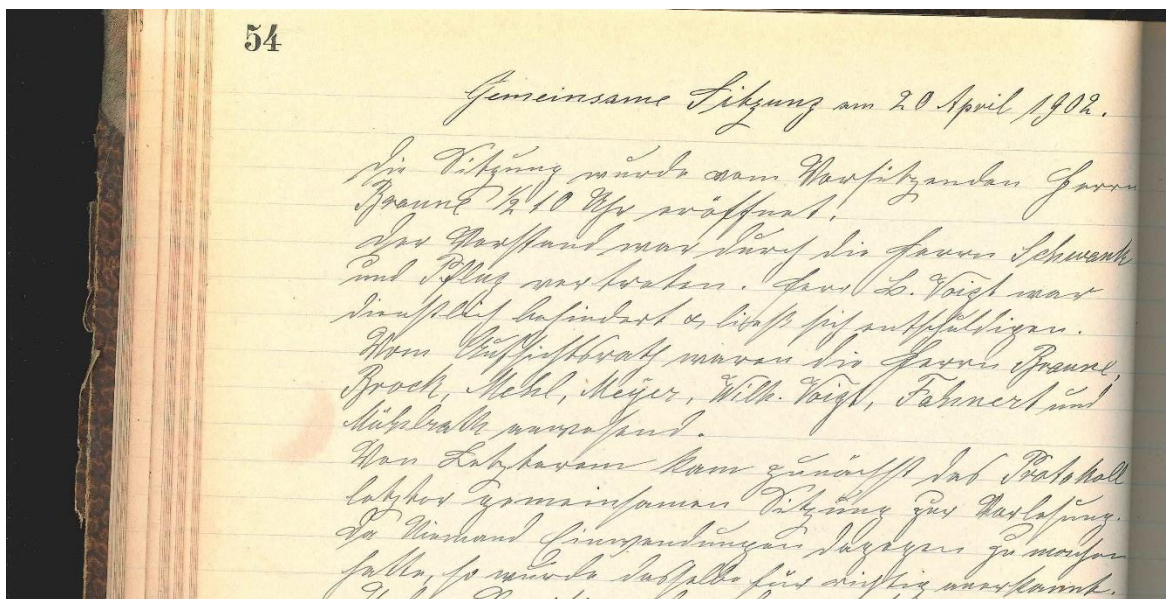 54
Gemeinsame Sitzung am 20 April 1902.
Die Sitzung wurde vom Vorsitzenden Herrn
Braune ½ 10 Uhr eröffnet.
Der Vorstand war durch die Herrn Schwank
und Pflug vertreten. Herr L. Voigt war
dienstlich behindert & ließ sich entschuldigen.
Vom Aufsichtsrath waren die Herrn Braune,
Brock, Mehl, Meyer, Wilh. Voigt, Fahnert und
Mühlrath anwesend.
Von Letzterem kam zunächst das Protokoll
letzter gemeinsamen Sitzung zur Vorlesung.
Da Niemand Einwendungen dagegen zu machen
hatte, so wurde dasselbe für richtig anerkannt.